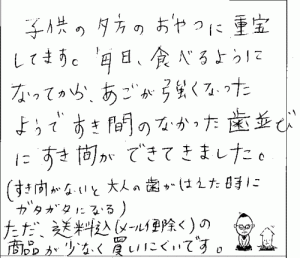 子供の夕方のおやつに重宝
してます。毎日、食べるように
なってから、あごが強くなった
ようですき間のなかった歯並び
にすき間ができてきました。
(すき間がないと大人の歯がはえた時に
ガタガタになる)
ただ、送料込(メール便除く)の
商品が少なく買いにくいです。